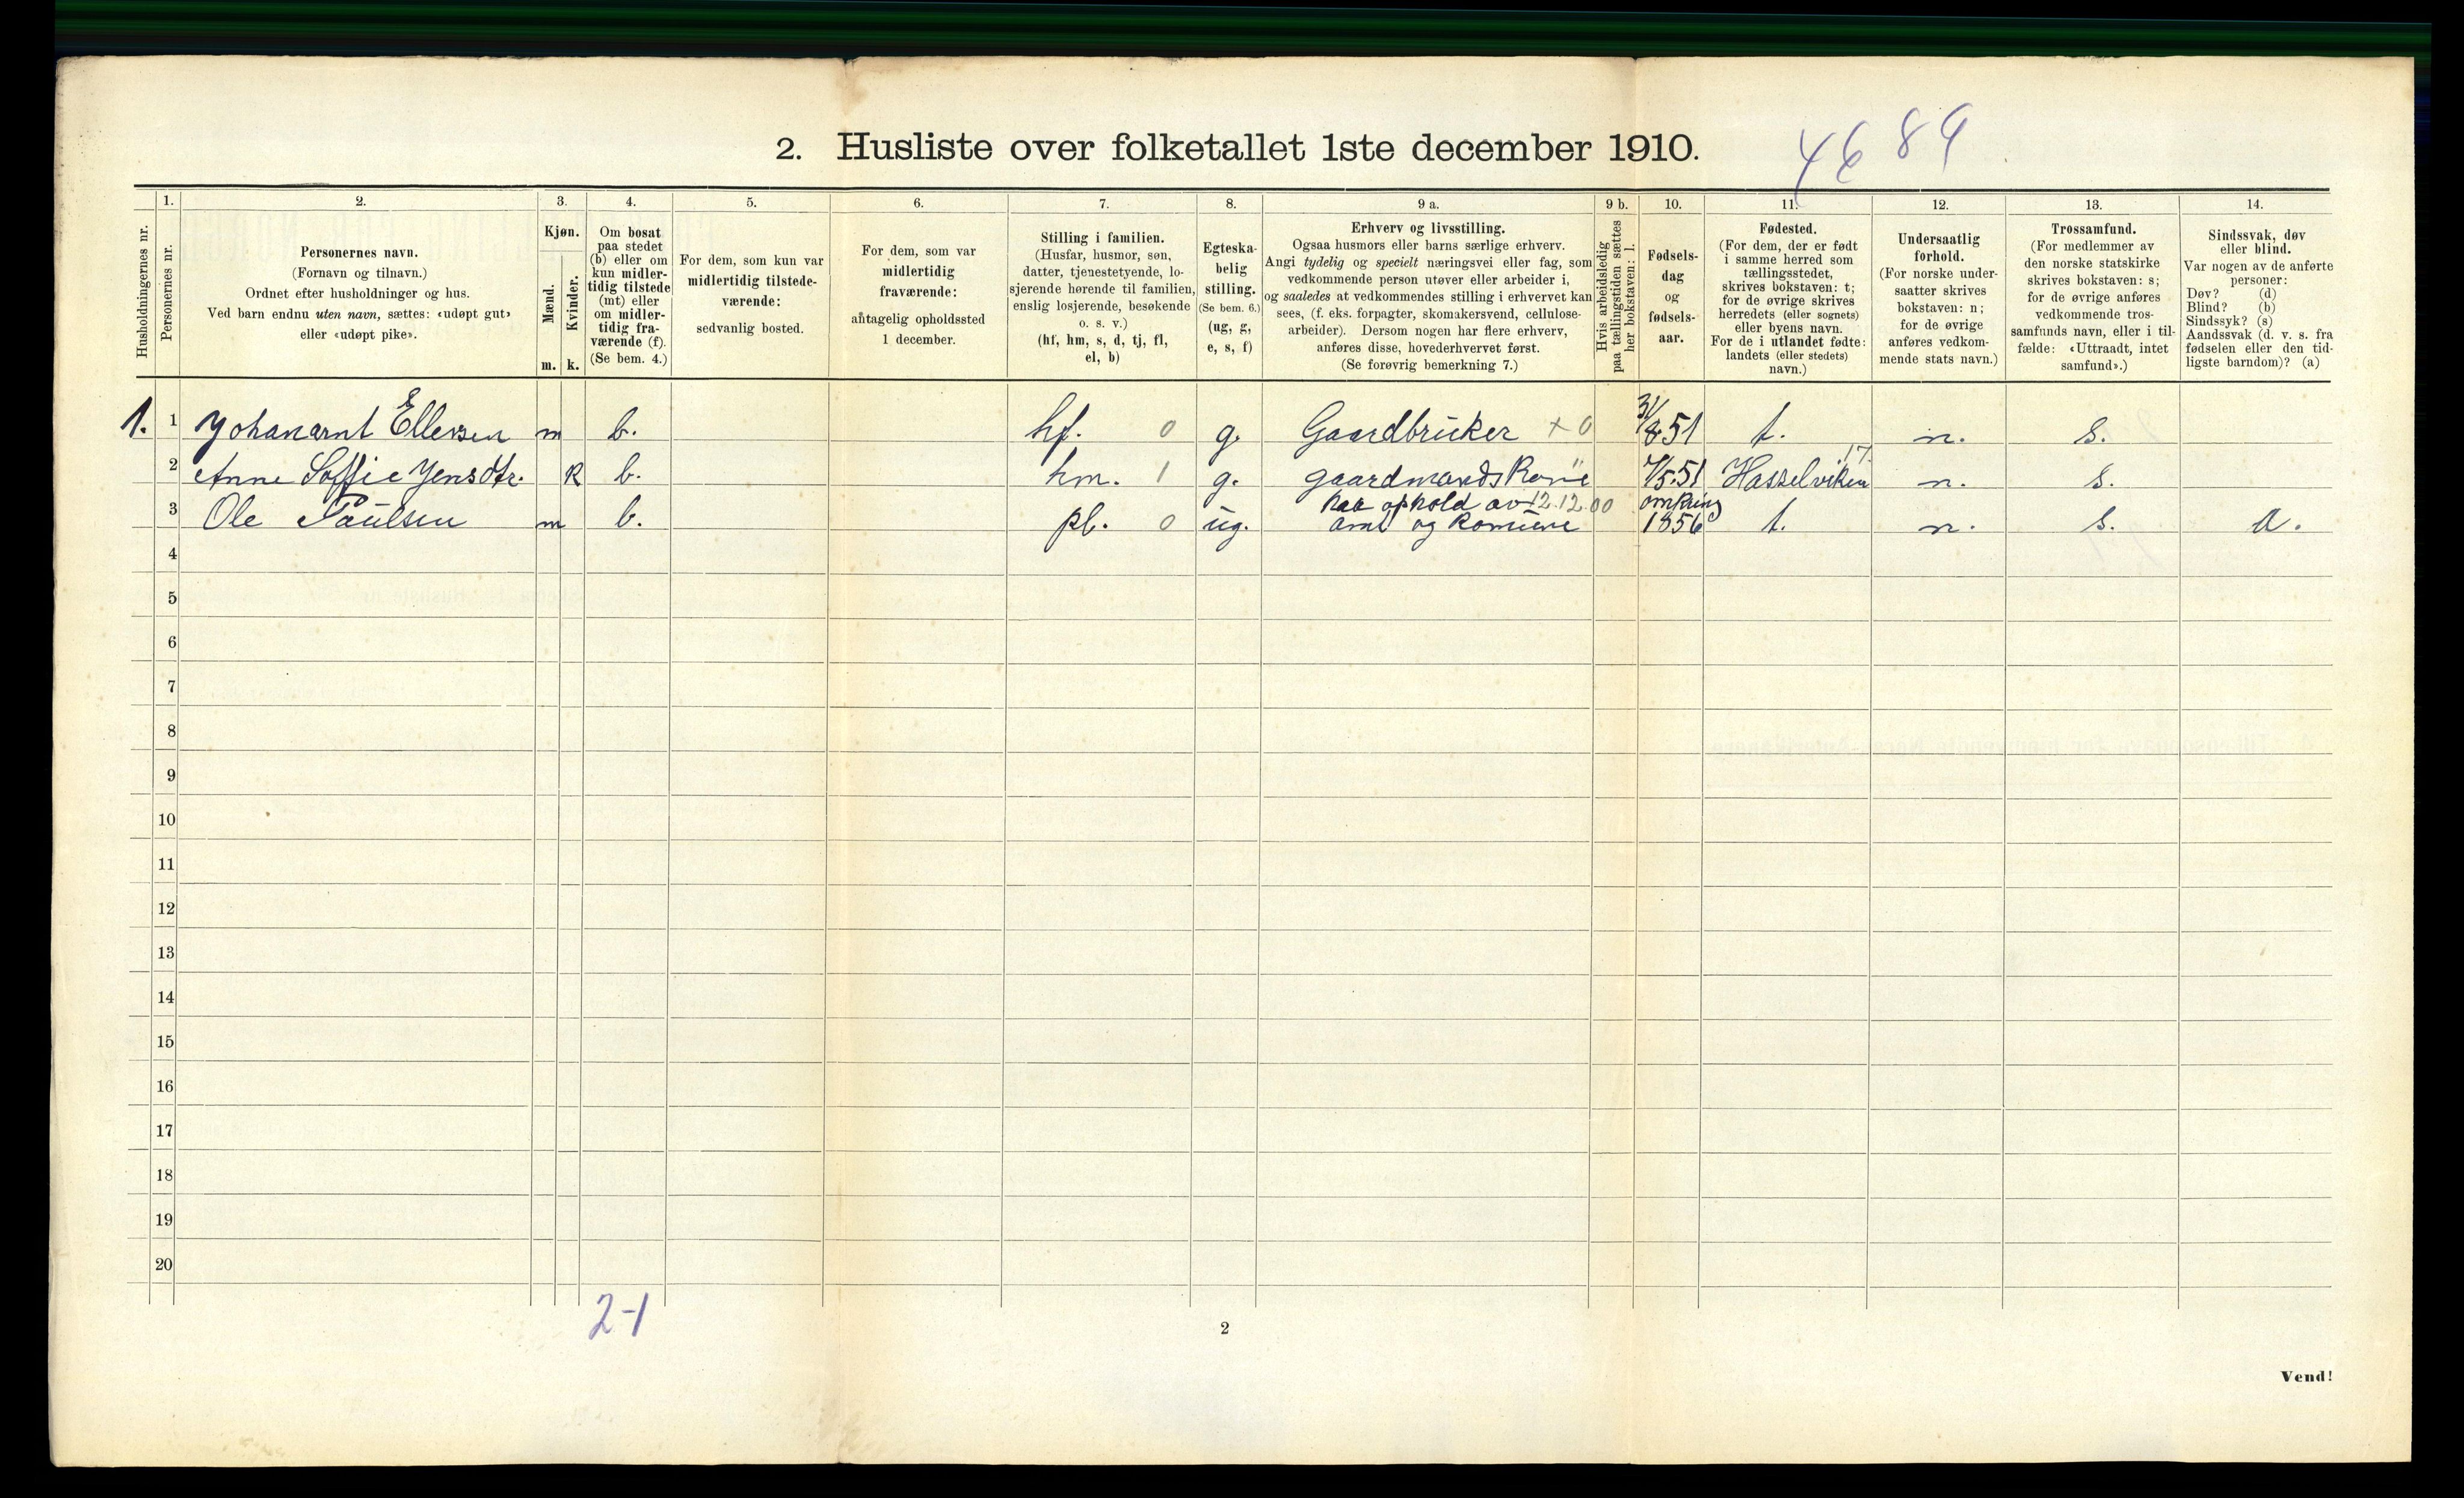 2. Husliste over folketallet 1ste december 1910.
4689
Husholdningernes nr.
1.
Personernes nr.
2.
Personernes navn.
(Fornavn og tilnavn.)
Ordnet efter husholdninger og hus.
Ved barn endnu uten navn, sættes: «udøpt gut»
eller «udøpt pike».
3.
Kjøn.
Mænd.
Kvinder.
m. k.
4.
Om bosat
paa stedet
(b) eller om
kun midler-
tidig tilstede
(mt) eller
om midler-
tidig fra-
værende (f).
(Se bem. 4.)
5.
For dem, som kun var
midlertidig tilstede-
værende:
sedvanlig bosted.
6.
For dem, som var
midlertidig
fraværende:
antagelig opholdssted
1 december.
7.
Stilling i familien.
(Husfar, husmor, søn,
datter, tjenestetyende, lo-
sjerende hørende til familien,
enslig losjerende, besøkende
o. s. v.)
(hf, hm, s, d, tj, fl,
el, b)
8.
Egteska-
belig
stilling.
(Se bem. 6.)
(ug, g,
e, s, f)
9 a.
Erhverv og livsstilling.
Ogsaa husmors eller barns særlige erhverv.
Angi tydelig og specielt næringsvei eller fag, som
vedkommende person utøver eller arbeider i,
og saaledes at vedkommendes stilling i erhvervet kan
sees, (f. eks. forpagter, skomakersvend, cellulose-
arbeider). Dersom nogen har flere erhverv,
anføres disse, hovederhvervet først.
(Se forøvrig bemerkning 7.)
9 b.
Hvis arbeidsledig
paa tællingstiden sættes
her bokstaven: l.
10.
Fødsels-
dag
og
fødsels-
aar.
11.
Fødested.
(For dem, der er født
i samme herred som
tællingsstedet,
skrives bokstaven: t;
for de øvrige skrives
herredets (eller sognets)
eller byens navn.
For de i utlandet fødte:
landets (eller stedets)
navn.)
12.
Undersaatlig
forhold.
(For norske under-
saatter skrives
bokstaven: n;
for de øvrige
anføres vedkom-
mende stats navn.)
13.
Trossamfund.
(For medlemmer av
den norske statskirke
skrives bokstaven: s;
for de øvrige anføres
vedkommende tros-
samfunds navn, eller i til-
fælde: «Uttraadt, intet
samfund».)
14.
Sindssvak, døv
eller blind.
Var nogen av de anførte
personer:
Døv? (d)
Blind? (b)
Sindssyk? (s)
Aandssvak (d. v. s. fra
fødselen eller den tid-
ligste barndom)? (a)
1. 1 Johanarnt Ellevsen m b. hf. 0 g. Gaardbruker + 0 31/8 51 t. n. s.
2 Anne Soffie Jensdtr. k b. hm. 1 g. gaardmands Kone 7/5 51 Hasselviken 17. n. s.
3 Ole Paulsen m b. pl. 0 ug. har ophold av 12.12.00 amt og komune omkring 1856 t. n. s. a.
4
5
6
7
8
9
10
11
12
13
14
15
16
17
18
19
20
2-1
2
Vend!